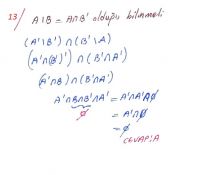 13/ A\B = A∩B' olduğu bilinmeli
(A'\B') ∩ (B'\A)
(A'∩(B')') ∩ (B'∩A')
(A'∩B) ∩ (B'∩A')
A'∩B∩B'∩A' = A'∩A'∩∅
∅ = A'∩∅
= ∅
CEVAP:A